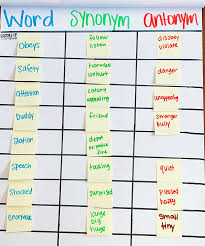 Word Synonym Antonym
Obeys
follow
listen
disobey
violate
Safety
harmless
unhurt
danger
attention
catchy
appealing
unappealing
buddy
friend
stranger
bully
Station
depot
fire
Speech
talking
quiet
Shocked
surprised
Pleased
happy
enormous
large
big
huge
Small
tiny